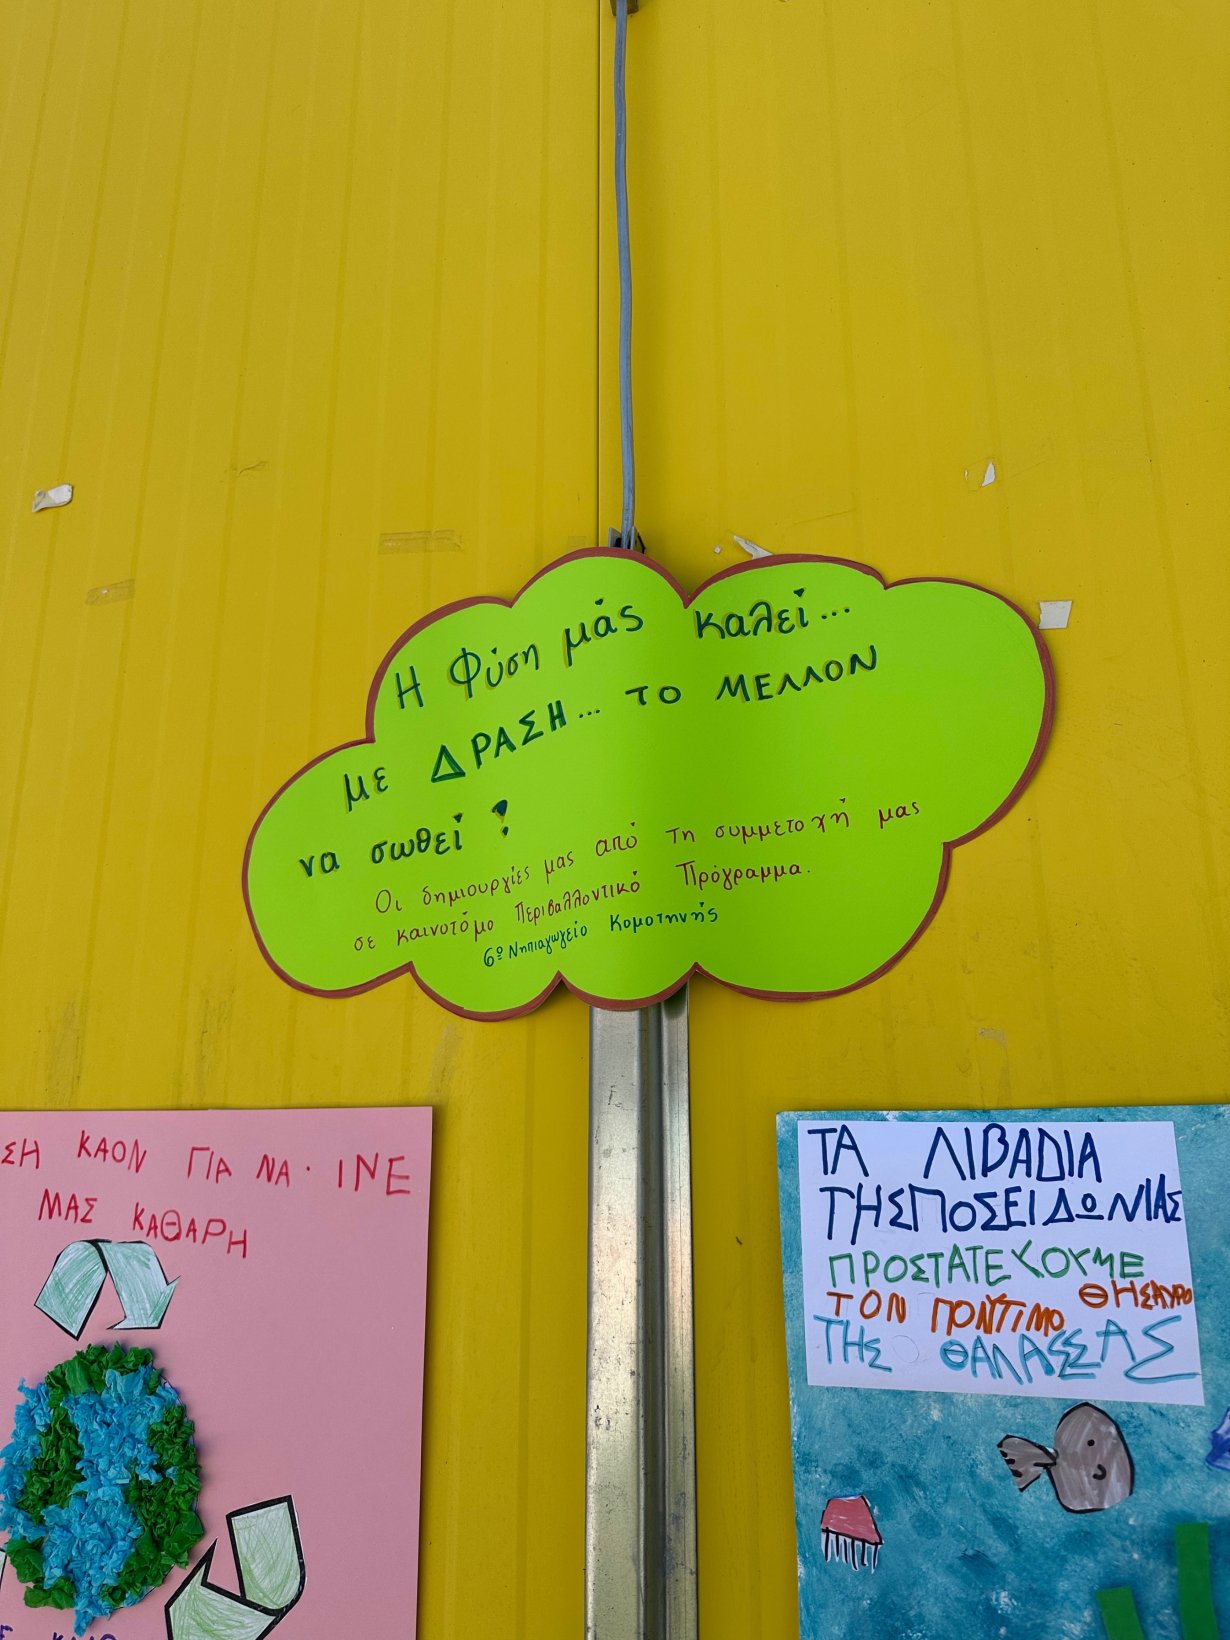 Η Φύση μάς καλεί...
με ΔΡΑΣΗ... ΤΟ ΜΕΛΛΟΝ
να σωθεί !
Οι δημιουργίες μας από τη συμμετοχή μας
σε καινοτόμο Περιβαλλοντικό Πρόγραμμα.
6º Νηπιαγωγείο Κομοτηνής
ΣΗ ΚΑΟΝ ΓΙΑ ΝΑ · ΙΝΕ
ΜΑΣ ΚΑΘΑΡΗ
ΤΑ ΛΙΒΑΔΙΑ
ΤΗΣ ΠΟΣΕΙΔΩΝΙΑΣ
ΠΡΟΣΤΑΤΕΥΟΥΜΕ
ΤΟΝ ΠΟΝΤΙΜΟ ΘΗΣΑΥΡΟ
ΤΗΣ ΘΑΛΑΣΣΑΣ